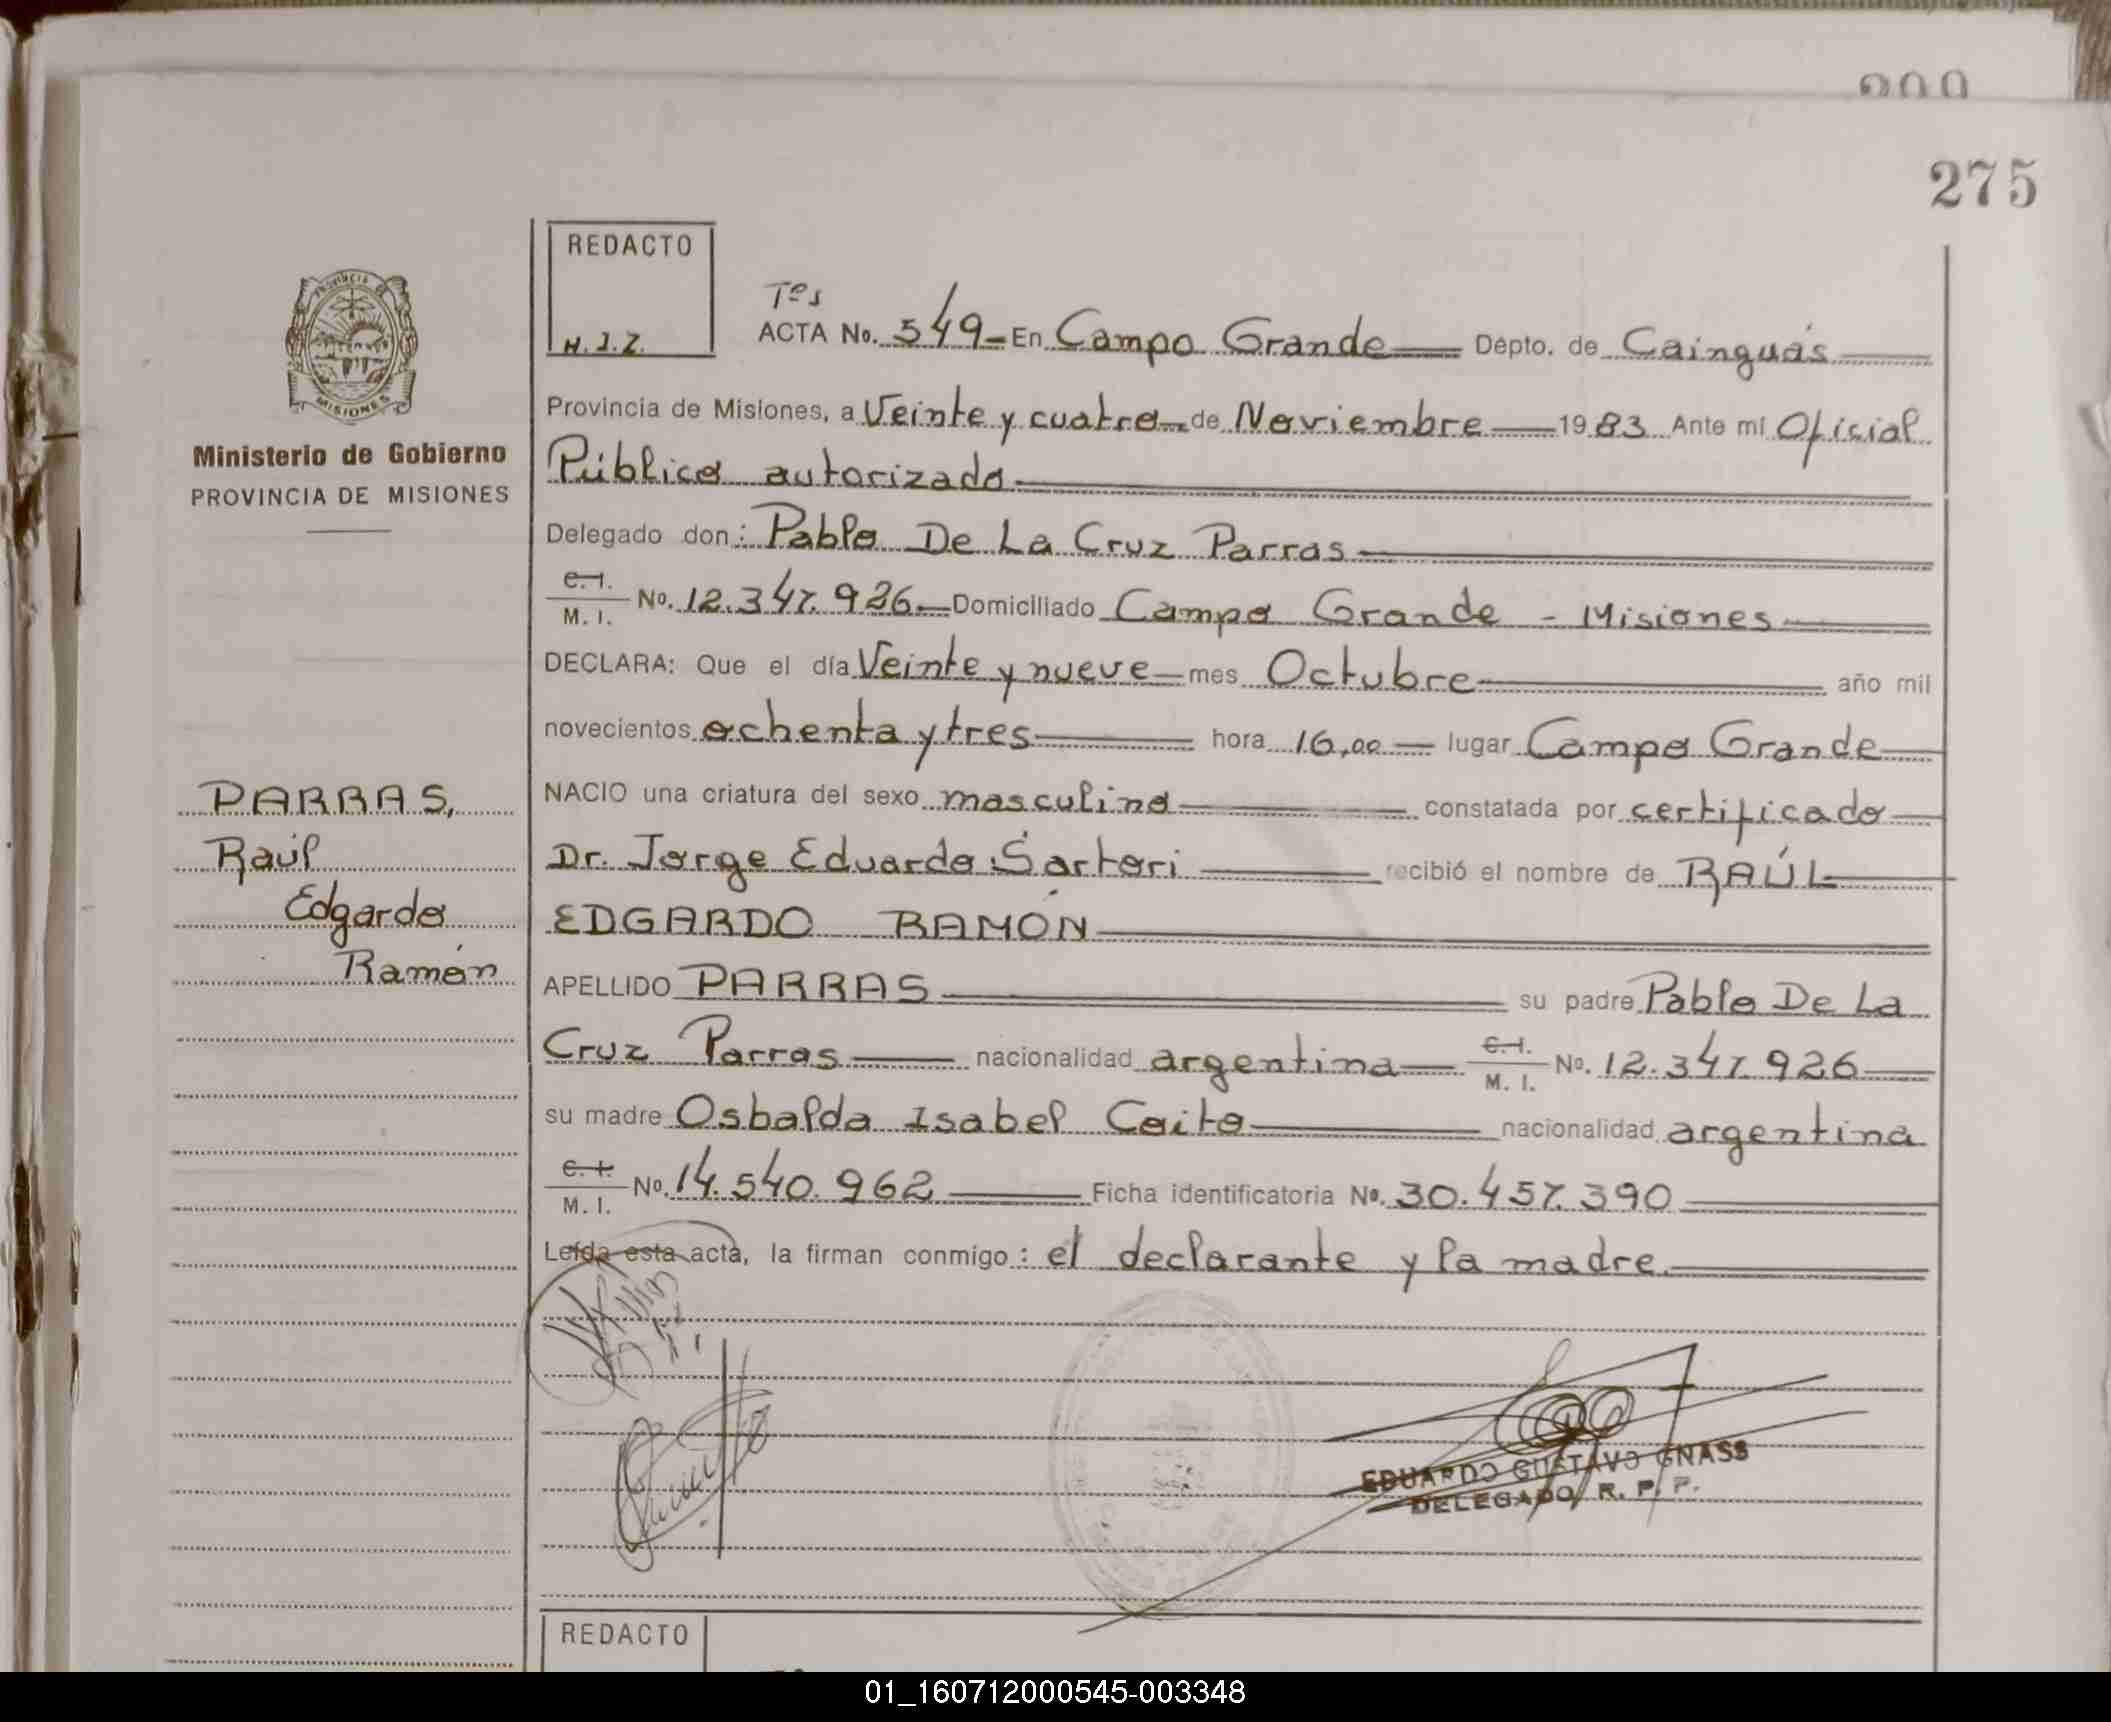 275
REDACTO
H.J.Z.
Tos
ACTA No. 549 En Campo Grande Depto. de Cainguás
Provincia de Misiones, a Veinte y cuatro de Noviembre 1983 Ante mí Oficial
Público autorizado
Delegado don: Pablo De La Cruz Parras
C.I. M.I. No. 12.347.926 Domiciliado Campo Grande - Misiones
DECLARA: Que el día Veinte y nueve mes Octubre año mil
novecientos ochenta y tres hora 16,00 lugar Campo Grande
NACIO una criatura del sexo masculino constatada por certificado
Dr. Jorge Eduardo Sartori recibió el nombre de RAÚL
EDGARDO RAMÓN
APELLIDO PARRAS su padre Pablo De La
Cruz Parras nacionalidad argentina C.I. M.I. No. 12.347.926
su madre Osbalda Isabel Coito nacionalidad argentina
C.I. M.I. No. 14.540.962 Ficha identificatoria No. 30.457.390
Leída esta acta, la firman conmigo: el declarante y la madre.
EDUARDO GUSTAVO GNASS
DELEGADO R. P. P.
REDACTO
PROVINCIA DE
MISIONES
Ministerio de Gobierno
PROVINCIA DE MISIONES
PARRAS,
Raúl
Edgardo
Ramón
01_160712000545-003348